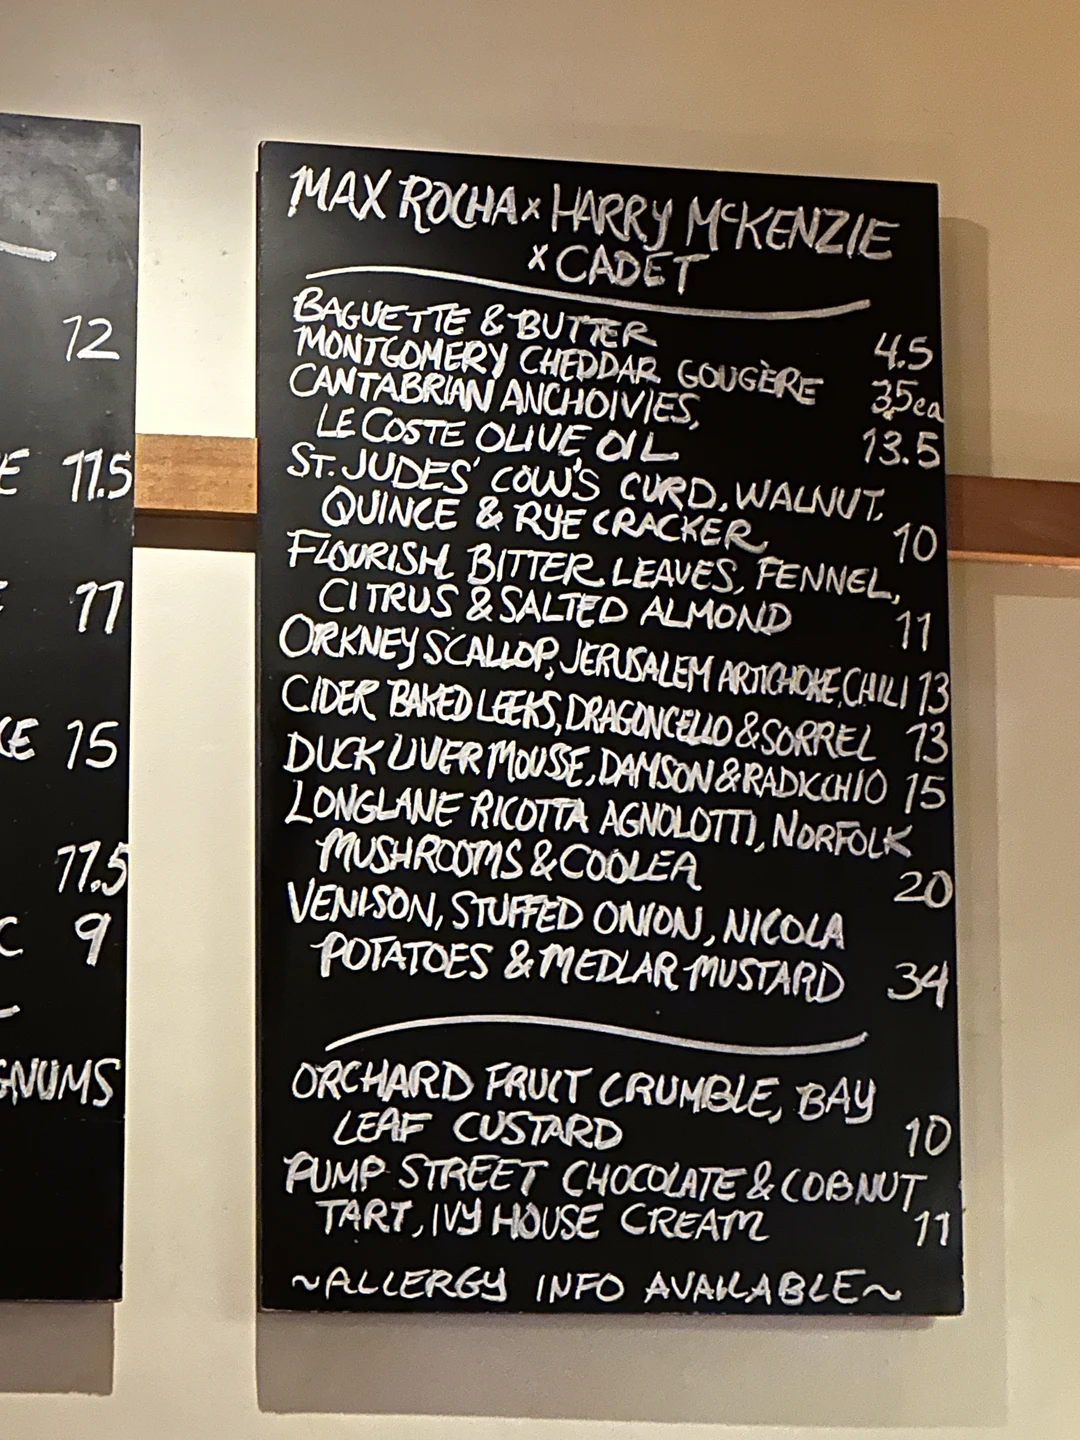 12
E 11.5
E 11
KE 15
11.5
C 9
GNUMS
MAX ROCHA x HARRY McKENZIE
x CADET
BAGUETTE & BUTTER 4.5
MONTGOMERY CHEDDAR GOUGÈRE 3.5ea
CANTABRIAN ANCHOIVIES,
LE COSTE OLIVE OIL 13.5
ST. JUDES' COW'S CURD, WALNUT,
QUINCE & RYE CRACKER 10
FLOURISH BITTER LEAVES, FENNEL,
CITRUS & SALTED ALMOND 11
ORKNEY SCALLOP, JERUSALEM ARTICHOKE, CHILI 13
CIDER BAKED LEEKS, DRAGONCELLO & SORREL 13
DUCK LIVER MOUSSE, DAMSON & RADICCHIO 15
LONGLANE RICOTTA AGNOLOTTI, NORFOLK
MUSHROOMS & COOLEA 20
VENISON, STUFFED ONION, NICOLA
POTATOES & MEDLAR MUSTARD 34
ORCHARD FRUIT CRUMBLE, BAY
LEAF CUSTARD 10
PUMP STREET CHOCOLATE & COBNUT
TART, IVY HOUSE CREAM 11
~ALLERGY INFO AVAILABLE~